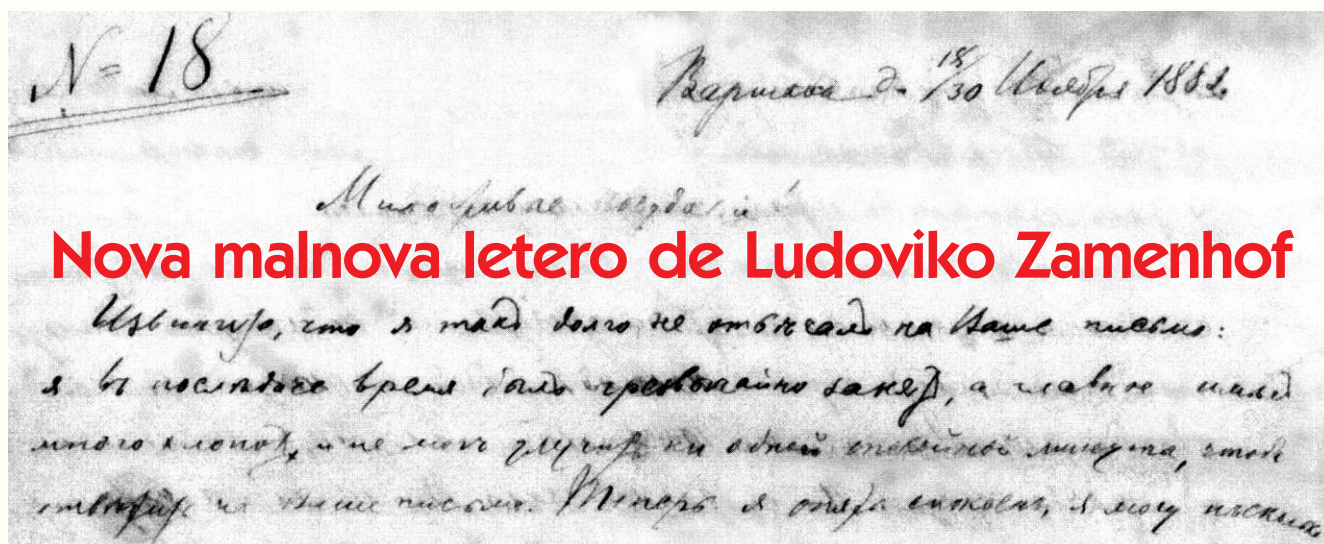 № 18
Варшава д. 18/30 Ноября 1882
Милостивые государи!
Nova malnova letero de Ludoviko Zamenhof
Извините, что я такъ долго не отвѣчалъ на Ваше письмо:
я въ послѣднее время былъ чрезвычайно занятъ, а главное имѣлъ
много хлопотъ, и не могъ улучить ни одной спокойной минуты, чтобъ
отвѣтить на Ваше письмо. Теперь я опять спокоенъ, я могу